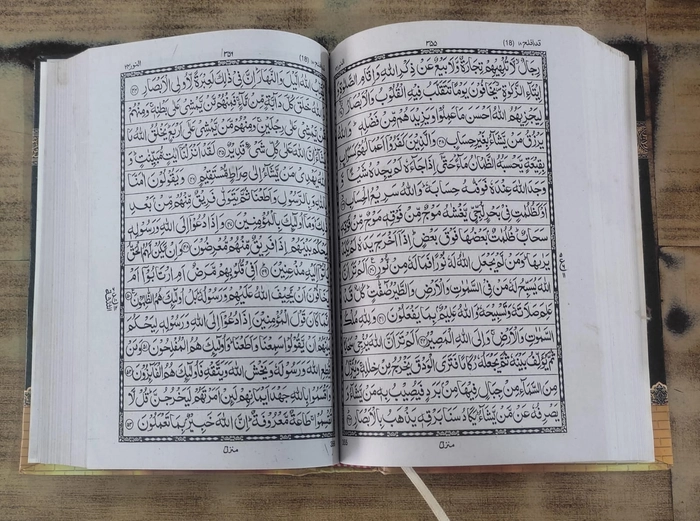 قد افلح ١٨ (18)
٣٥٥
رِجَالٌ لَّا تُلْهِيْهِمْ تِجَارَةٌ وَّلَا بَيْعٌ عَنْ ذِكْرِ اللّٰهِ وَاِقَامِ الصَّلٰوةِ وَ
اِيْتَآءِ الزَّكٰوةِ يَخَافُوْنَ يَوْمًا تَتَقَلَّبُ فِيْهِ الْقُلُوْبُ وَالْاَبْصَارُ ﴿٣٧﴾
لِيَجْزِيَهُمُ اللّٰهُ اَحْسَنَ مَا عَمِلُوْا وَيَزِيْدَهُمْ مِّنْ فَضْلِهٖ وَاللّٰهُ
يَرْزُقُ مَنْ يَّشَآءُ بِغَيْرِ حِسَابٍ ﴿٣٨﴾ وَالَّذِيْنَ كَفَرُوْٓا اَعْمَالُهُمْ كَسَرَابٍۢ
بِقِيْعَةٍ يَّحْسَبُهُ الظَّمْاٰنُ مَآءً حَتّٰٓى اِذَا جَآءَهٗ لَمْ يَجِدْهُ شَيْئًا وَّ
وَجَدَ اللّٰهَ عِنْدَهٗ فَوَفّٰىهُ حِسَابَهٗ وَاللّٰهُ سَرِيْعُ الْحِسَابِ ﴿٣٩﴾
اَوْ كَظُلُمٰتٍ فِيْ بَحْرٍ لُّجِّيٍّ يَّغْشٰىهُ مَوْجٌ مِّنْ فَوْقِهٖ مَوْجٌ مِّنْ فَوْقِهٖ
سَحَابٌ ظُلُمٰتٌۢ بَعْضُهَا فَوْقَ بَعْضٍ اِذَآ اَخْرَجَ يَدَهٗ لَمْ يَكَدْ
يَرٰىهَا وَمَنْ لَّمْ يَجْعَلِ اللّٰهُ لَهٗ نُوْرًا فَمَا لَهٗ مِنْ نُّوْرٍ ﴿٤٠﴾ اَلَمْ تَرَ اَنَّ
اللّٰهَ يُسَبِّحُ لَهٗ مَنْ فِي السَّمٰوٰتِ وَالْاَرْضِ وَالطَّيْرُ صٰٓفّٰتٍ كُلٌّ قَدْ
عَلِمَ صَلَاتَهٗ وَتَسْبِيْحَهٗ وَاللّٰهُ عَلِيْمٌۢ بِمَا يَفْعَلُوْنَ ﴿٤١﴾ وَلِلّٰهِ مُلْكُ
السَّمٰوٰتِ وَالْاَرْضِ وَاِلَى اللّٰهِ الْمَصِيْرُ ﴿٤٢﴾ اَلَمْ تَرَ اَنَّ اللّٰهَ
ثُمَّ يُؤَلِّفُ بَيْنَهٗ ثُمَّ يَجْعَلُهٗ رُكَامًا فَتَرَى الْوَدْقَ يَخْرُجُ مِنْ خِلٰلِهٖ وَيُنَزِّلُ
مِنَ السَّمَآءِ مِنْ جِبَالٍ فِيْهَا مِنْۢ بَرَدٍ فَيُصِيْبُ بِهٖ مَنْ يَّشَآءُ وَ
يَصْرِفُهٗ عَنْ مَّنْ يَّشَآءُ يَكَادُ سَنَا بَرْقِهٖ يَذْهَبُ بِالْاَبْصَارِ ﴿٤٣﴾
منزل
(18)
٣٥٦
النور ٢٤
اللّٰهُ الَّيْلَ وَالنَّهَارَ اِنَّ فِيْ ذٰلِكَ لَعِبْرَةً لِّاُولِي الْاَبْصَارِ ﴿٤٤﴾
وَاللّٰهُ خَلَقَ كُلَّ دَآبَّةٍ مِّنْ مَّآءٍ فَمِنْهُمْ مَّنْ يَّمْشِيْ عَلٰى بَطْنِهٖ وَمِنْهُمْ
مَّنْ يَّمْشِيْ عَلٰى رِجْلَيْنِ وَمِنْهُمْ مَّنْ يَّمْشِيْ عَلٰٓى اَرْبَعٍ يَخْلُقُ اللّٰهُ مَا
يَشَآءُ اِنَّ اللّٰهَ عَلٰى كُلِّ شَيْءٍ قَدِيْرٌ ﴿٤٥﴾ لَقَدْ اَنْزَلْنَآ اٰيٰتٍ مُّبَيِّنٰتٍ وَ
اللّٰهُ يَهْدِيْ مَنْ يَّشَآءُ اِلٰى صِرَاطٍ مُّسْتَقِيْمٍ ﴿٤٦﴾ وَيَقُوْلُوْنَ اٰمَنَّا
بِاللّٰهِ وَبِالرَّسُوْلِ وَاَطَعْنَا ثُمَّ يَتَوَلّٰى فَرِيْقٌ مِّنْهُمْ مِّنْۢ بَعْدِ
ذٰلِكَ وَمَآ اُولٰٓئِكَ بِالْمُؤْمِنِيْنَ ﴿٤٧﴾ وَاِذَا دُعُوْٓا اِلَى اللّٰهِ وَرَسُوْلِهٖ
لِيَحْكُمَ بَيْنَهُمْ اِذَا فَرِيْقٌ مِّنْهُمْ مُّعْرِضُوْنَ ﴿٤٨﴾ وَاِنْ يَّكُنْ لَّهُمُ الْحَقُّ
يَاْتُوْٓا اِلَيْهِ مُذْعِنِيْنَ ﴿٤٩﴾ اَفِيْ قُلُوْبِهِمْ مَّرَضٌ اَمِ ارْتَابُوْٓا اَمْ
يَخَافُوْنَ اَنْ يَّحِيْفَ اللّٰهُ عَلَيْهِمْ وَرَسُوْلُهٗ بَلْ اُولٰٓئِكَ هُمُ الظّٰلِمُوْنَ ﴿٥٠﴾
اِنَّمَا كَانَ قَوْلَ الْمُؤْمِنِيْنَ اِذَا دُعُوْٓا اِلَى اللّٰهِ وَرَسُوْلِهٖ لِيَحْكُمَ
بَيْنَهُمْ اَنْ يَّقُوْلُوْا سَمِعْنَا وَاَطَعْنَا وَاُولٰٓئِكَ هُمُ الْمُفْلِحُوْنَ ﴿٥١﴾ وَمَنْ
يُّطِعِ اللّٰهَ وَرَسُوْلَهٗ وَيَخْشَ اللّٰهَ وَيَتَّقْهِ فَاُولٰٓئِكَ هُمُ الْفَآئِزُوْنَ ﴿٥٢﴾
وَاَقْسَمُوْا بِاللّٰهِ جَهْدَ اَيْمَانِهِمْ لَئِنْ اَمَرْتَهُمْ لَيَخْرُجُنَّ قُلْ لَّا
تُقْسِمُوْا طَاعَةٌ مَّعْرُوْفَةٌ اِنَّ اللّٰهَ خَبِيْرٌۢ بِمَا تَعْمَلُوْنَ ﴿٥٣﴾
منزل